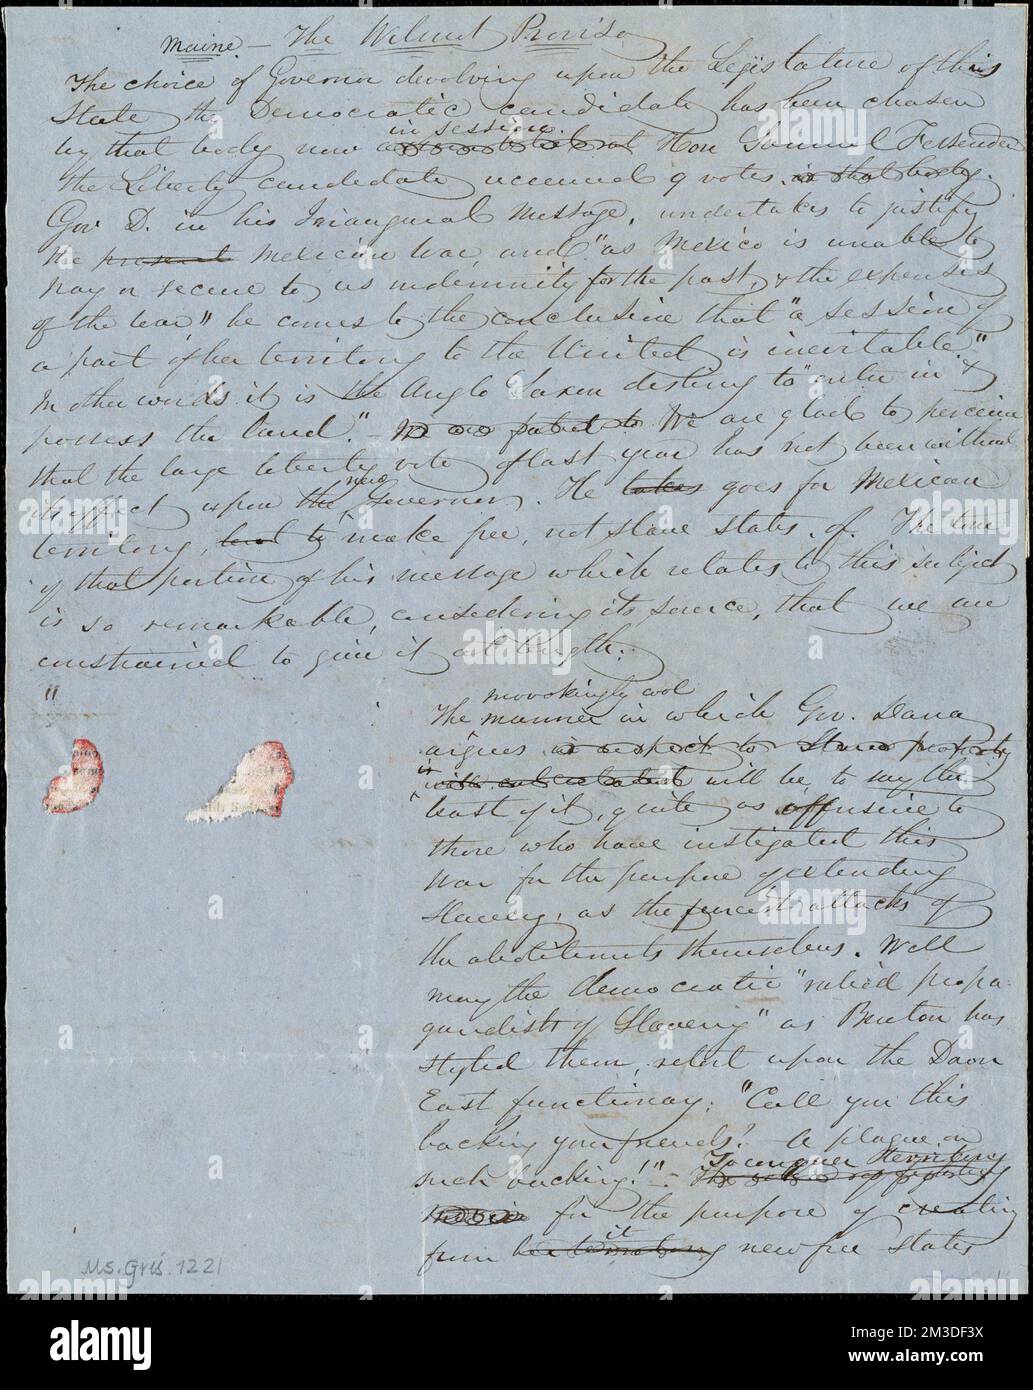 Maine. — The Wilmot Proviso
The choice of Governor devolving upon the Legislature of this
State the Democratic candidate has been chosen
in session.
by that body now Hon Samuel Fessenden
the Liberty candidate received 9 votes. in that body.
Gov D. in his Inaugural Message, undertakes to justify
the present Mexican War and "as Mexico is unable to
pay or secure to us indemnity for the past, & the expenses
of the war" he comes to the conclusion that "a session of
a part of her territory to the United is inevitable."
In other words it is the Anglo Saxon destiny to "enter in &
possess the land." — We are glad to perceive
that the large liberty vote of last year has not been without
new
its effect upon the Governor. He takes goes for Mexican
territory, but to make free, not slave states, of. The tone
of that portion of his message which relates to this subject
is so remarkable, considering its source, that we are
constrained to give it at length.
"
provokingly cool
The manner in which Gov. Dana
argues in respect to Slave property
is
will be, to say the
least of it, quite as offensive to
those who have instigated this
War for the purpose of extending
Slavery, as the fiercest attacks of
the abolitionists themselves. Well
may the democratic "rabid propa-
gandists of Slavery" as Benton has
styled them, retort upon the Down
East functionary; "Call you this
backing your friends? A plague on
such backing!" —
To conquer Territory
for the purpose of creating
it
from her territory new free States
Ms. Gris. 1221
alamy
Image ID: 2M3DF3X
www.alamy.com